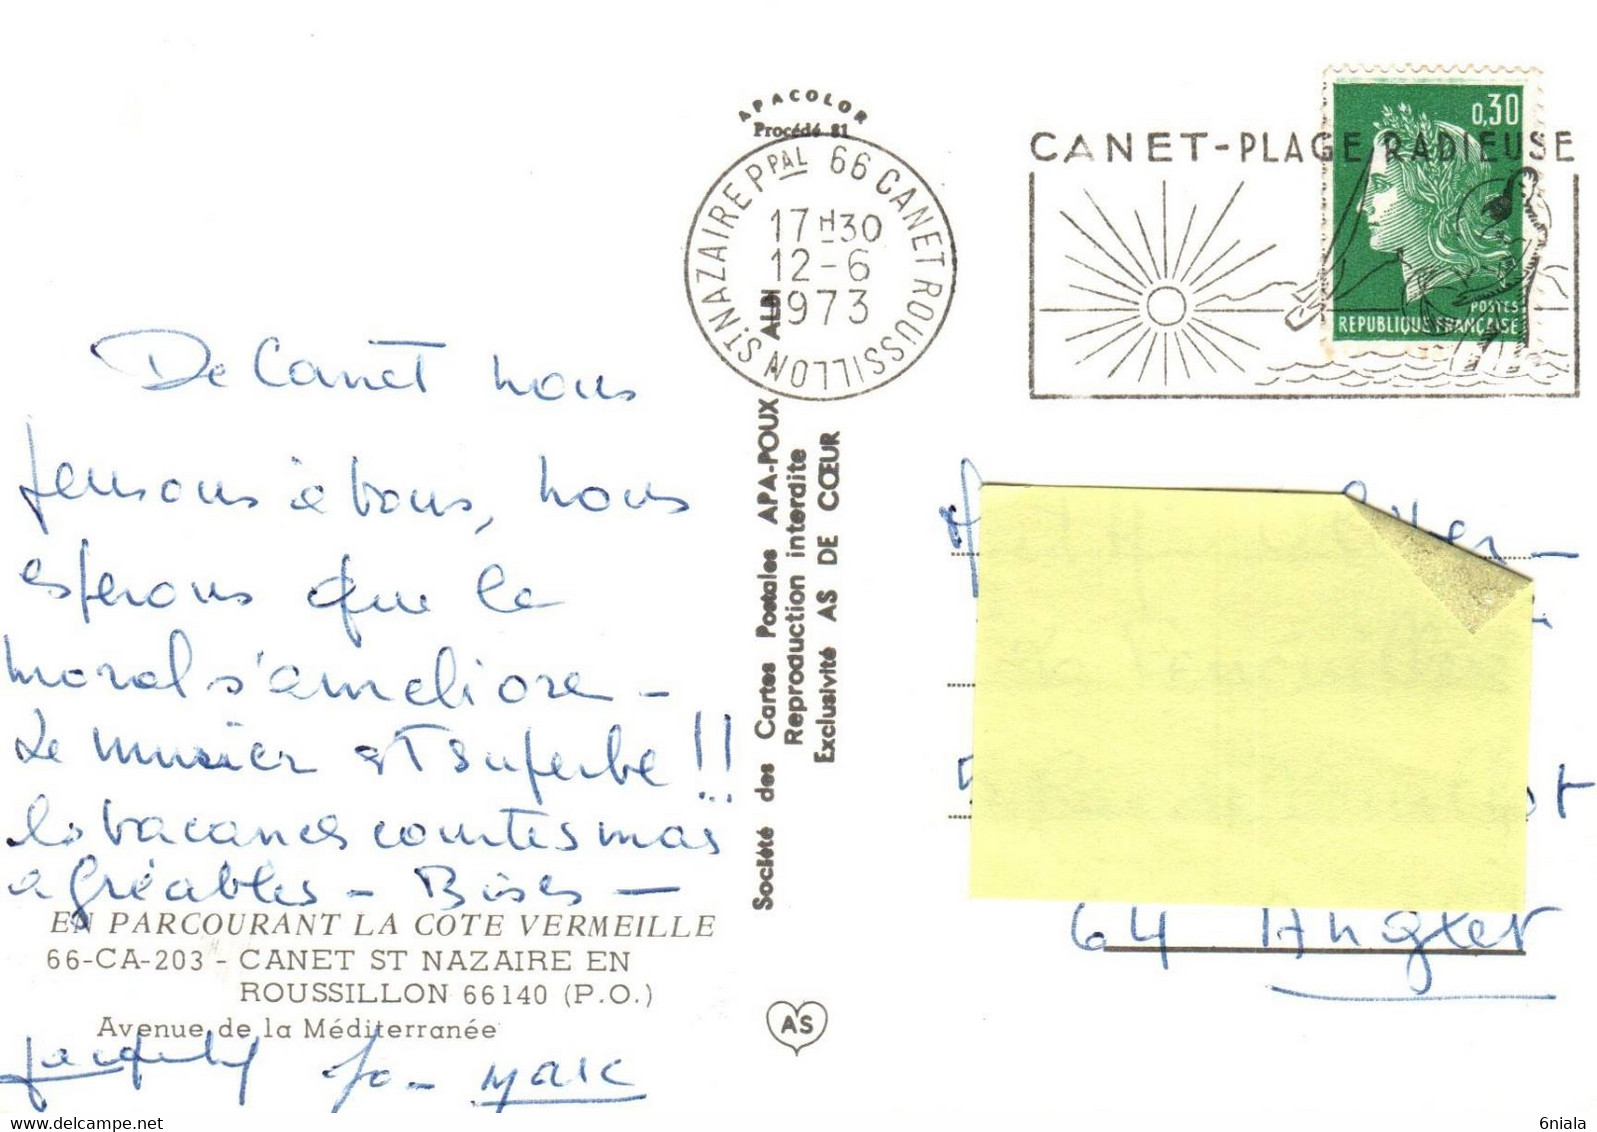 APACOLOR
Procédé 81
ST NAZAIRE PPAL 66 CANET ROUSSILLON
17H30
12-6
1973
CANET-PLAGE RADIEUSE
0,30
POSTES
REPUBLIQUE FRANÇAISE
De Canet nous
pensons à vous, nous
esperons que le
moral s'ameliore -
Le musicien est superbe!!
les vacances courtes mais
agréables - Bises -
EN PARCOURANT LA COTE VERMEILLE
66-CA-203 - CANET ST NAZAIRE EN
ROUSSILLON 66140 (P.O.)
Avenue de la Méditerranée
Jo - Marc
Société des Cartes Postales APA-POUX ALBI
Reproduction interdite
Exclusivité AS DE CŒUR
AS
64 Anglet
6niala